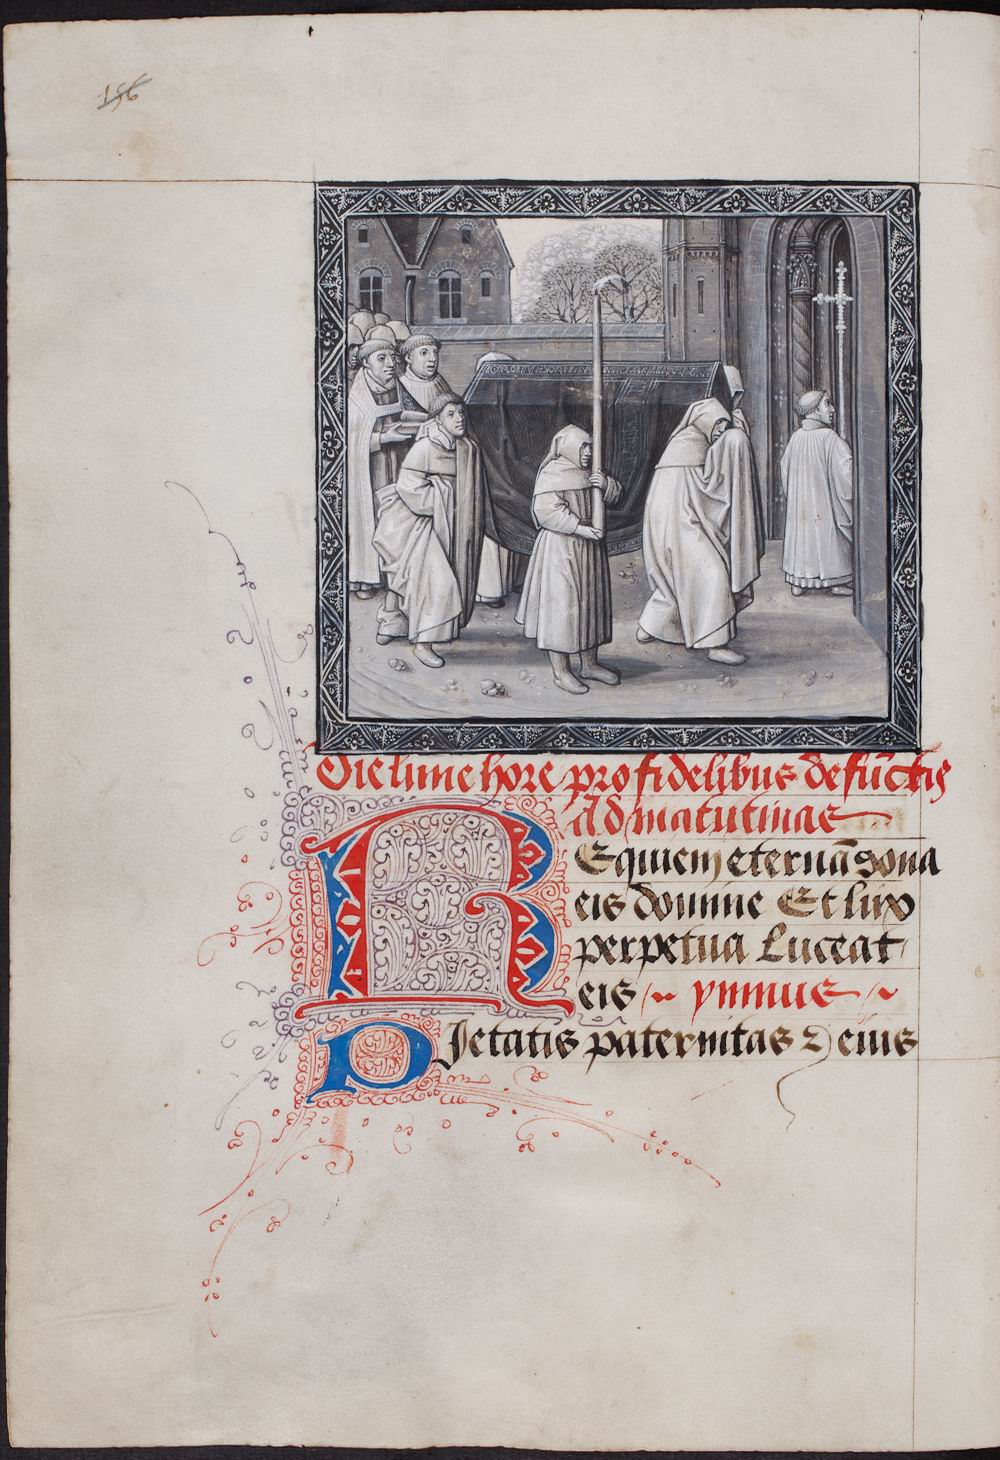 156
Die lune hore pro fidelibus defūctis
Ad matutinas
REquiem eternā dona
eis domine Et lux
perpetua Luceat
eis ymnus
PIetatis paternitas ⁊ eius